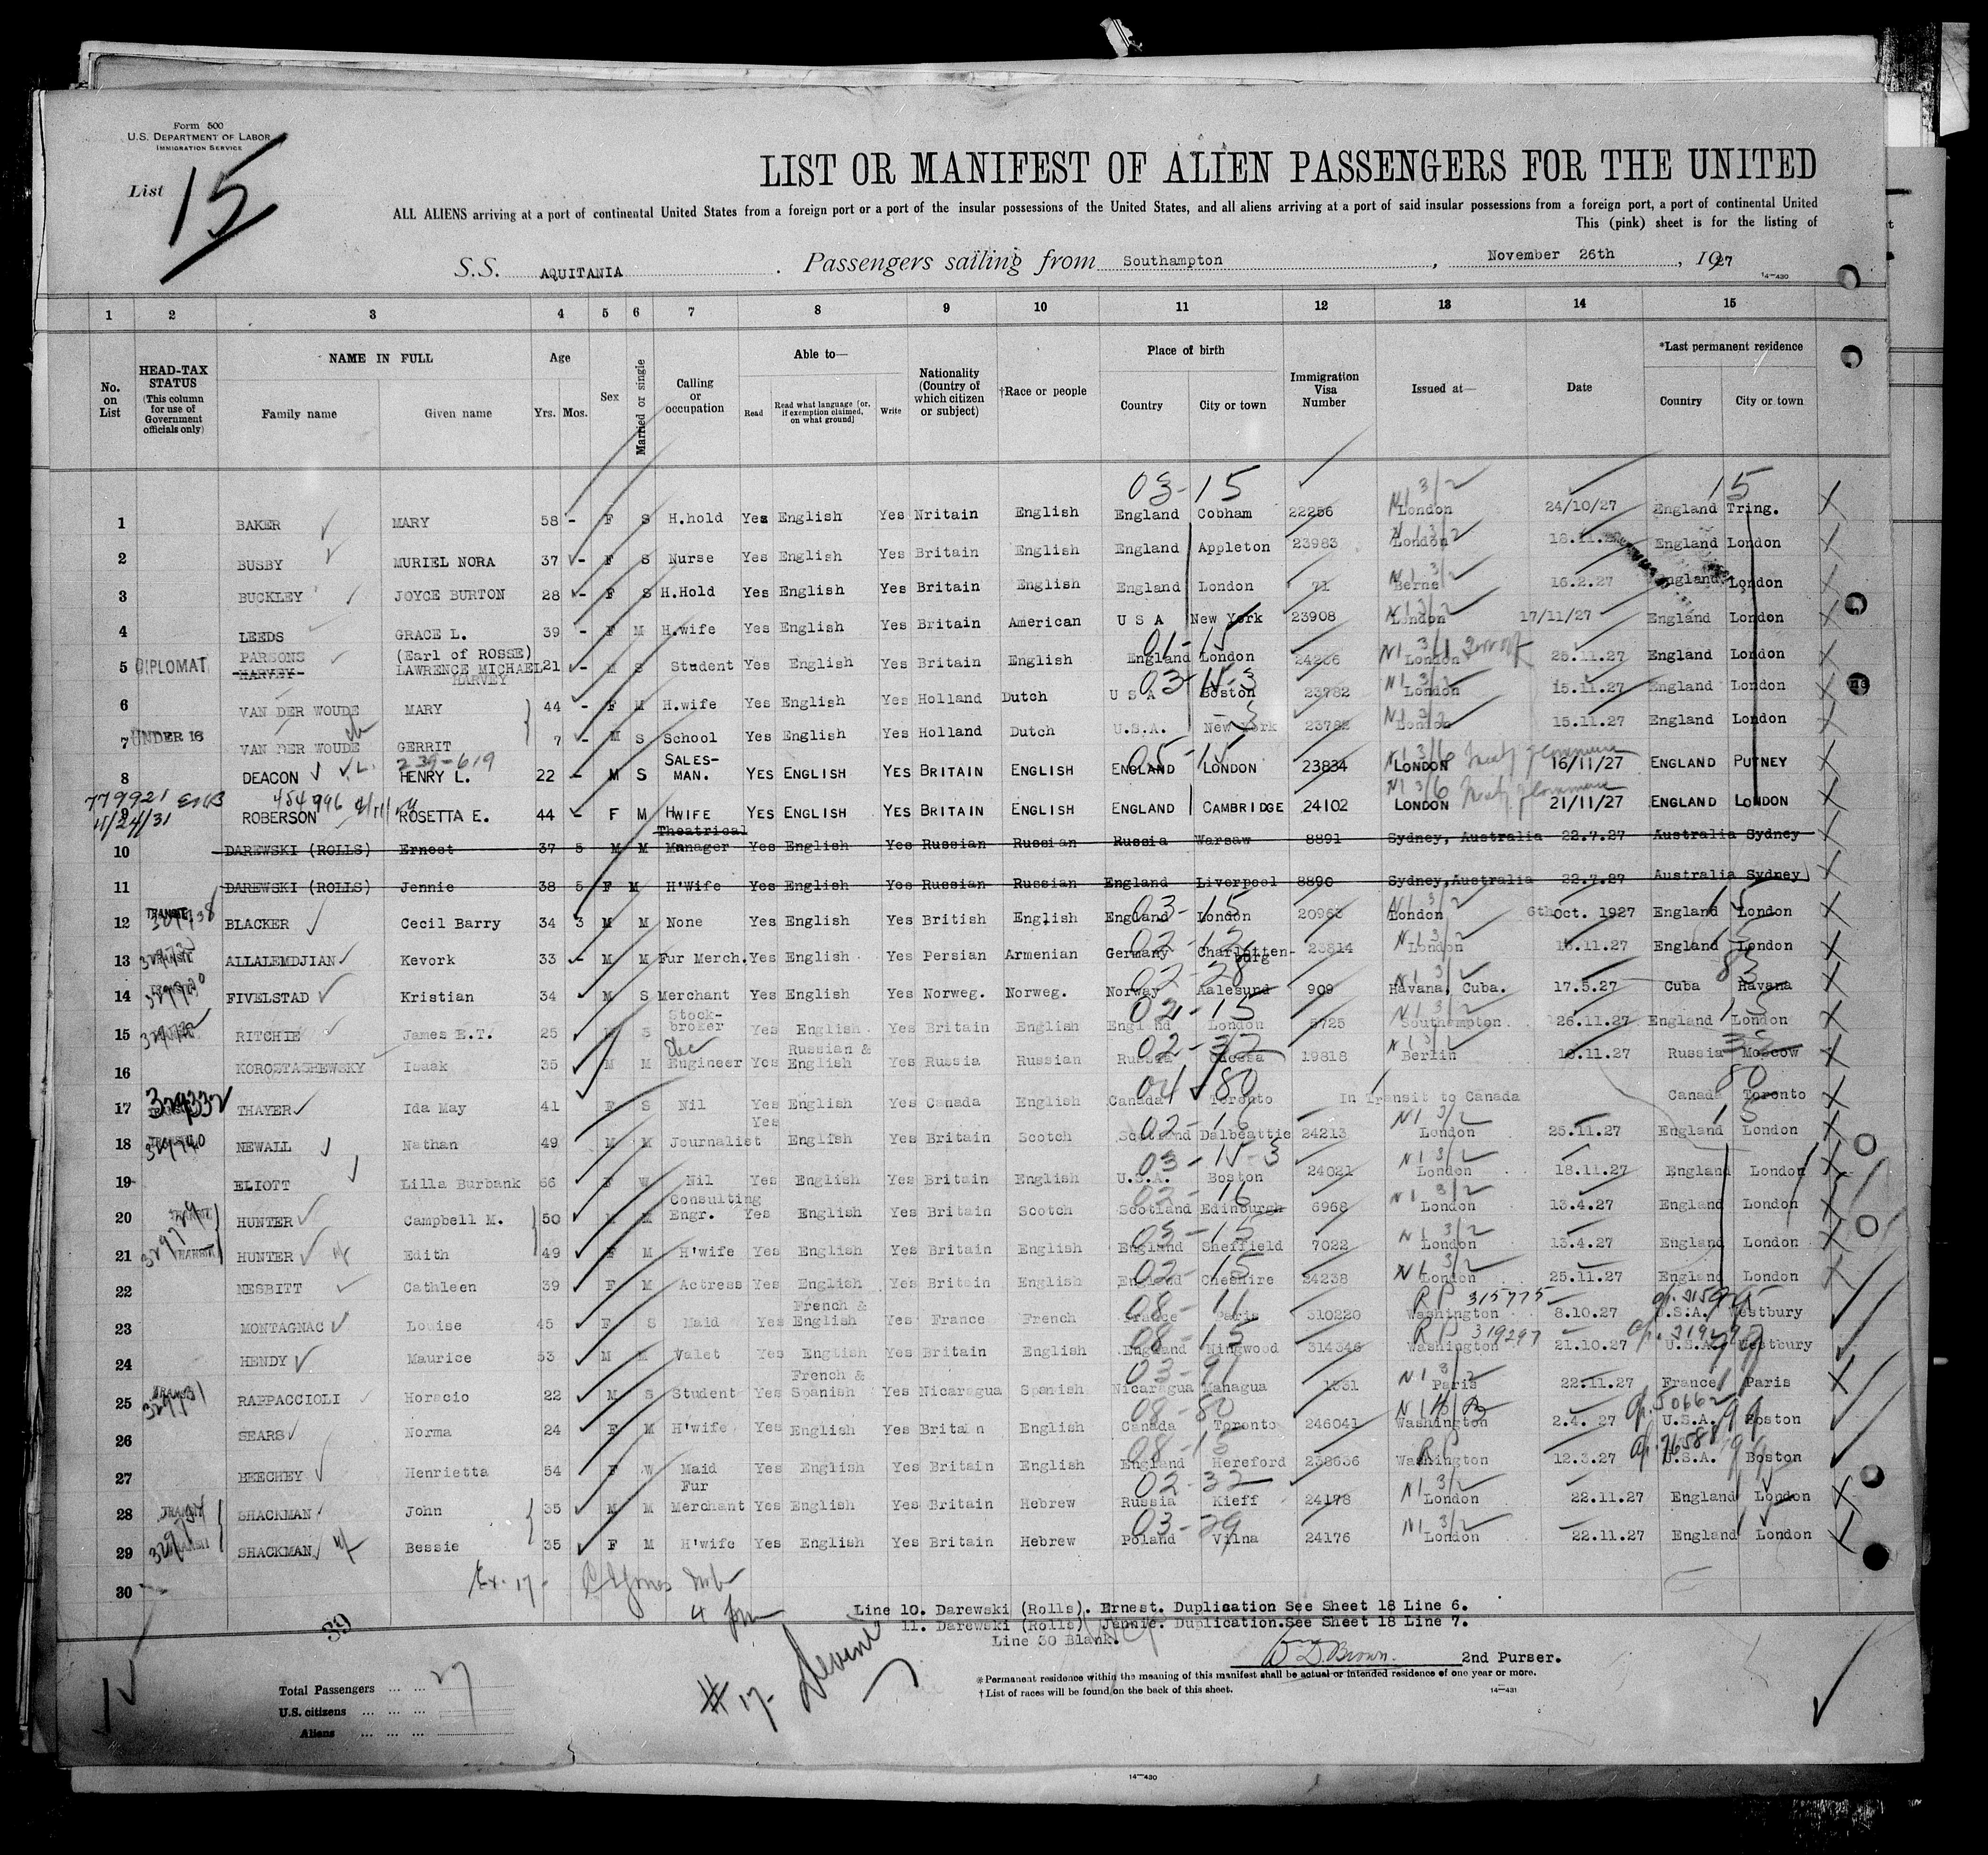 Form 500
U.S. DEPARTMENT OF LABOR
IMMIGRATION SERVICE
List 15
LIST OR MANIFEST OF ALIEN PASSENGERS FOR THE UNITED
ALL ALIENS arriving at a port of continental United States from a foreign port or a port of the insular possessions of the United States, and all aliens arriving at a port of said insular possessions from a foreign port, a port of continental United
This (pink) sheet is for the listing of
S.S. AQUITANIA . Passengers sailing from Southampton , November 26th , 1927
14—430
1 2 3 4 5 6 7 8 9 10 11 12 13 14 15
No. on List
HEAD-TAX STATUS (This column for use of Government officials only)
NAME IN FULL Family name Given name
Age Yrs. Mos.
Sex
Married or single
Calling or occupation
Able to— Read Read what language (or, if exemption claimed, on what ground) Write
Nationality (Country of which citizen or subject)
†Race or people
Place of birth Country City or town
Immigration Visa Number
Issued at—
Date
*Last permanent residence Country City or town
03-15 N1 3/2 15
1 BAKER MARY 58 - F S H.hold Yes English Yes Nritain English England Cobham 22256 London 24/10/27 England Tring.
2 BUSBY MURIEL NORA 37 - F S Nurse Yes English Yes Britain English England Appleton 23983 London 18.11. England London
3 BUCKLEY JOYCE BURTON 28 - F S H.Hold Yes English Yes Britain English England London 71 Berne 16.2.27 England London
4 LEEDS GRACE L. 39 - F M H.wife Yes English Yes Britain American U S A New York 23908 London 17/11/27 England London
5 DIPLOMAT PARSONS HARVEY (Earl of ROSSE) LAWRENCE MICHAEL HARVEY 21 - M S Student Yes English Yes Britain English England London London 25.11.27 England London
6 VAN DER WOUDE MARY 44 - F M H.wife Yes English Yes Holland Dutch U S A Boston 23782 London 15.11.27 England London
7 UNDER 16 VAN DER WOUDE GERRIT 7 - M S School Yes English Yes Holland Dutch U.S.A. New York 23782 London 15.11.27 England London
239-619
8 DEACON HENRY L. 22 - M S SALES-MAN. YES ENGLISH YES BRITAIN ENGLISH ENGLAND LONDON 23834 LONDON 16/11/27 ENGLAND PUTNEY
779921 11/24/31 454996
9 ROBERSON ROSETTA E. 44 - F M HWIFE YES ENGLISH YES BRITAIN ENGLISH ENGLAND CAMBRIDGE 24102 LONDON 21/11/27 ENGLAND LONDON
10 DAREWSKI (ROLLS) Ernest 37 5 M M Theatrical Manager Yes English Yes Russian Russian Russia Warsaw 8891 Sydney, Australia 22.7.27 Australia Sydney
11 DAREWSKI (ROLLS) Jennie 38 5 F M H'Wife Yes English Yes Russian Russian England Liverpool 8890 Sydney,Australia 22.7.27 Australia Sydney
12 TRANSIT BLACKER Cecil Barry 34 3 M M None Yes English Yes British English England London 20963 London 6th Oct. 1927 England London
13 ALLALEMDJIAN Kevork 33 - M M Fur Merch. Yes English Yes Persian Armenian Germany Charlotten-burg 23814 London 15.11.27 England London
14 FIVELSTAD Kristian 34 M S Merchant Yes English Yes Norweg. Norweg. Norway Aalesund 909 Havana, Cuba. 17.5.27 Cuba Havana
15 RITCHIE James E.T. 25 M S Stock-broker Yes English. Yes Britain English England London 5725 Southampton 26.11.27 England London
16 KOROSTASHEWSKY Isaak 35 M M Elec Engineer Yes Russian & English Yes Russia Russian Russia Odessa 19818 Berlin 18.11.27 Russia Moscow
17 329332 THAYER Ida May 41 F S Nil Yes English Yes Canada English Canada Toronto In Transit to Canada Canada Toronto
18 NEWALL Nathan 49 M M Journalist Yes English Yes Britain Scotch Scotland Dalbeattie 24213 London 25.11.27 England London
19 ELIOTT Lilla Burbank 66 F W Nil Yes English Yes Britain English U.S.A. Boston 24021 London 18.11.27 England London
20 HUNTER Campbell M. 50 M M Consulting Engr. Yes English Yes Britain Scotch Scotland Edinburgh 6968 London 13.4.27 England London
21 TRANSIT HUNTER Edith 49 F M H'wife Yes English Yes Britain English England Sheffield 7022 London 13.4.27 England London
22 NESBITT Cathleen 39 F M Actress Yes English Yes Britain English England Cheshire 24238 London 25.11.27 England London
RP 315775
23 MONTAGNAC Louise 45 F S Maid Yes French & English Yes France French France Paris 310220 Washington 8.10.27 U.S.A. Westbury
RP 319297
24 HENDY Maurice 53 M M Valet Yes English Yes Britain English England Ningwood 314346 Washington 21.10.27 U.S.A. Westbury
25 RAPPACCIOLI Horacio 22 M S Student Yes French & Spanish Yes Nicaragua Spanish Nicaragua Managua 1331 Paris 22.11.27 France Paris
26 SEARS Norma 24 F M H'wife Yes English Yes Britain English Canada Toronto 246041 Washington 2.4. 27 U.S.A. Boston
27 BEECHEY Henrietta 54 F W Maid Yes English Yes Britain English England Hereford 238636 Washington 12.3.27 U.S.A. Boston
28 SHACKMAN John 35 M M Fur Merchant Yes English Yes Britain Hebrew Russia Kieff 24178 London 22.11.27 England London
29 SHACKMAN Bessie 35 F M H'wife Yes English Yes Britain Hebrew Poland Vilna 24176 London 22.11.27 England London
30
39
Line 10. Darewski (Rolls). Ernest. Duplication See Sheet 18 Line 6.
11. Darewski (Rolls) Jennie. Duplication.See Sheet 18 Line 7.
Line 30 Blank.
2nd Purser.
# 17- Devine
Total Passengers ... ... 27
U.S. citizens ... ... ...
Aliens ... ... ...
* Permanent residence within the meaning of this manifest shall be actual or intended residence of one year or more.
† List of races will be found on the back of this sheet.
14—431
14—430